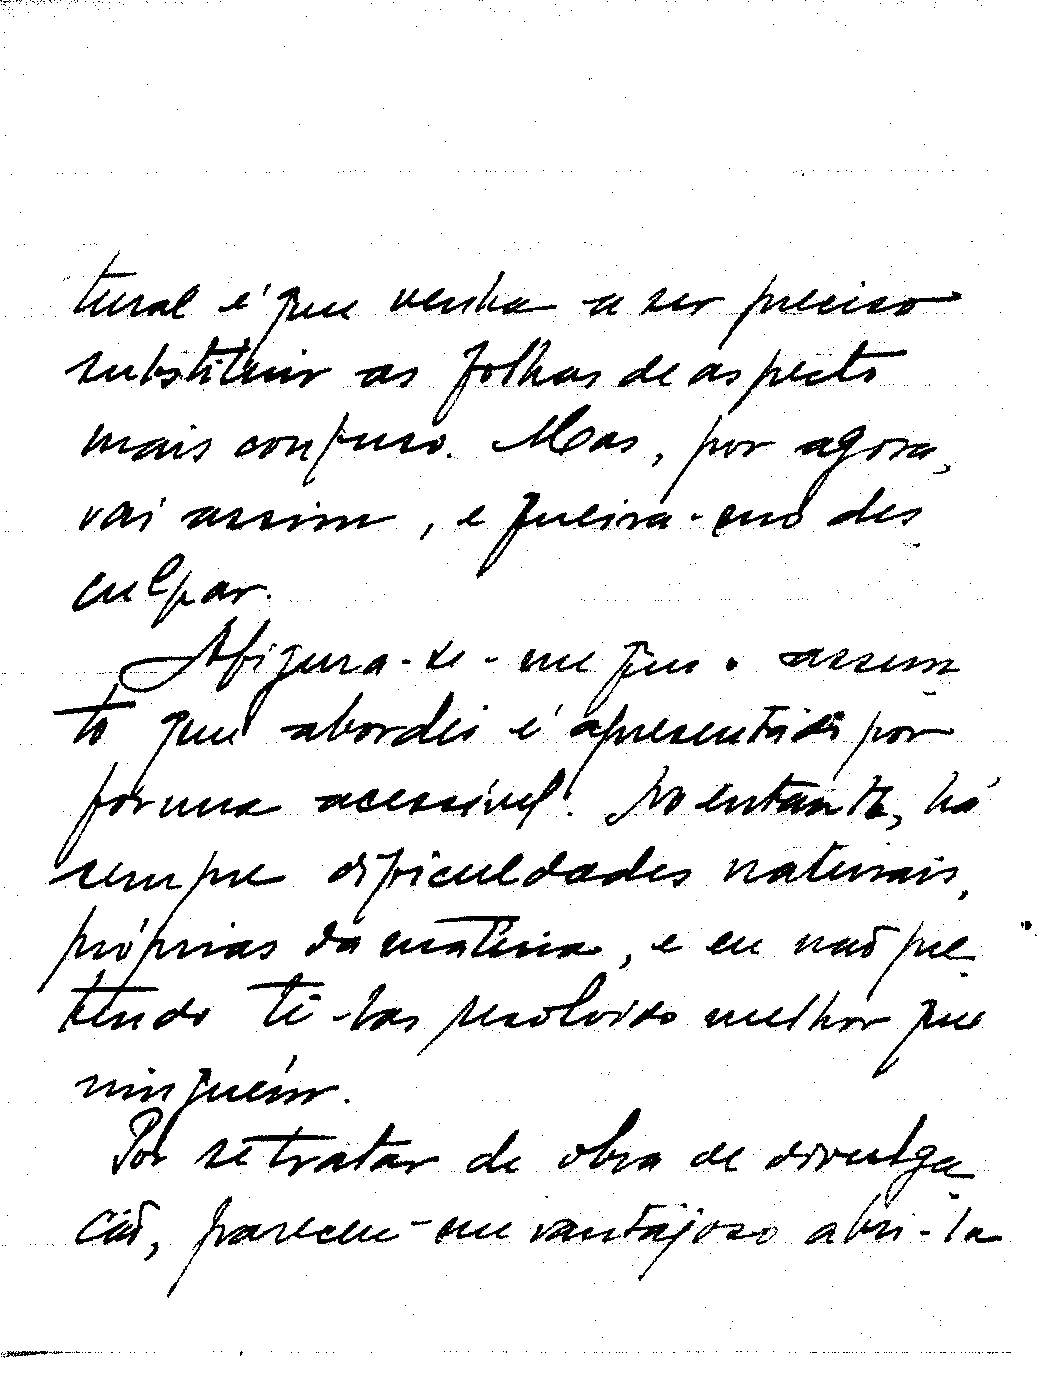 tural é que venha a ser preciso
substituir as folhas de aspecto
mais confuso. Mas, por agora,
vai assim, e queira-mo des
culpar.
Afigura-se-me que o assun
to que abordei é apresentado por
forma acessível. No entanto, há
sempre dificuldades naturais,
próprias da matéria, e eu não pre-
tendo tê-las resolvido melhor que
ninguém.
Por se tratar de obra de divulga
ção, pareceu-me vantajoso abri-la